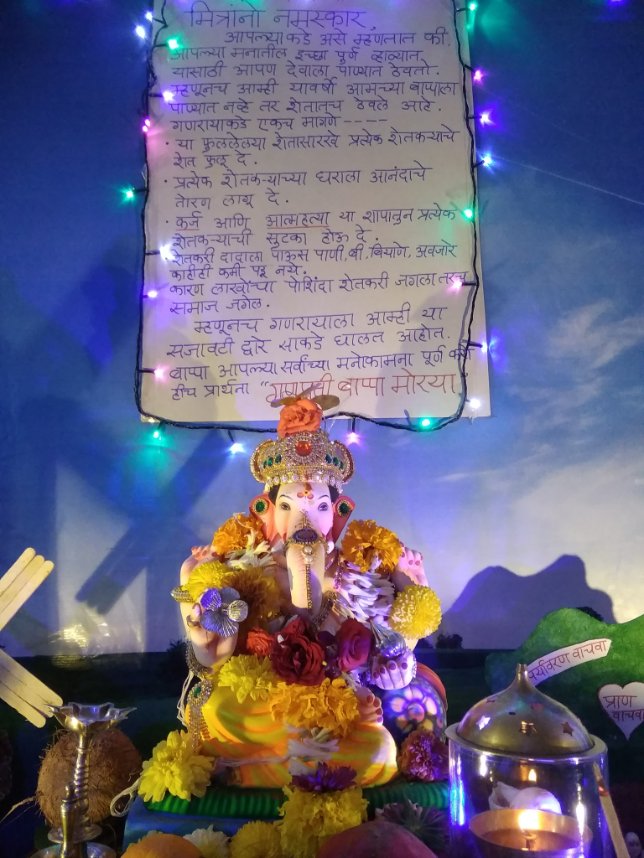 मित्रांनो नमस्कार,
आपल्याकडे असे म्हणतात की,
आपल्या मनातील इच्छा पुर्ण व्हाव्यात
यासाठी आपण देवाला पाण्यात ठेवतो.
म्हणूनच आम्ही यावर्षी आमच्या बाप्पाला
पाण्यात नव्हे तर शेतातच ठेवले आहे.
गणरायाकडे एकच मागणे ----
• या फुललेलया शेतासारखे प्रत्येक शेतकऱ्याचे
शेत फुलू दे.
• प्रत्येक शेतकऱ्याच्या घराला आनंदाचे
तोरण लागू दे.
• कर्ज आणि आत्महत्या या शापातुन प्रत्येक
शेतकऱ्याची सुटका होऊ दे.
शेतकरी दादाला पाऊस पाणी, बी, बियाणे, अवजारे
काहीही कमी पडू नये.
कारण लाखोंचा पोशिंदा शेतकरी जगला तरच
समाज जगेल.
म्हणूनच गणरायाला आम्ही या
सजावटी द्वारे साकडे घालत आहोत.
बाप्पा आपल्या सर्वांच्या मनोकामना पूर्ण करो
हीच प्रार्थना "गणपती बाप्पा मोरया
पर्यावरण वाचवा
प्राण
वाचवा